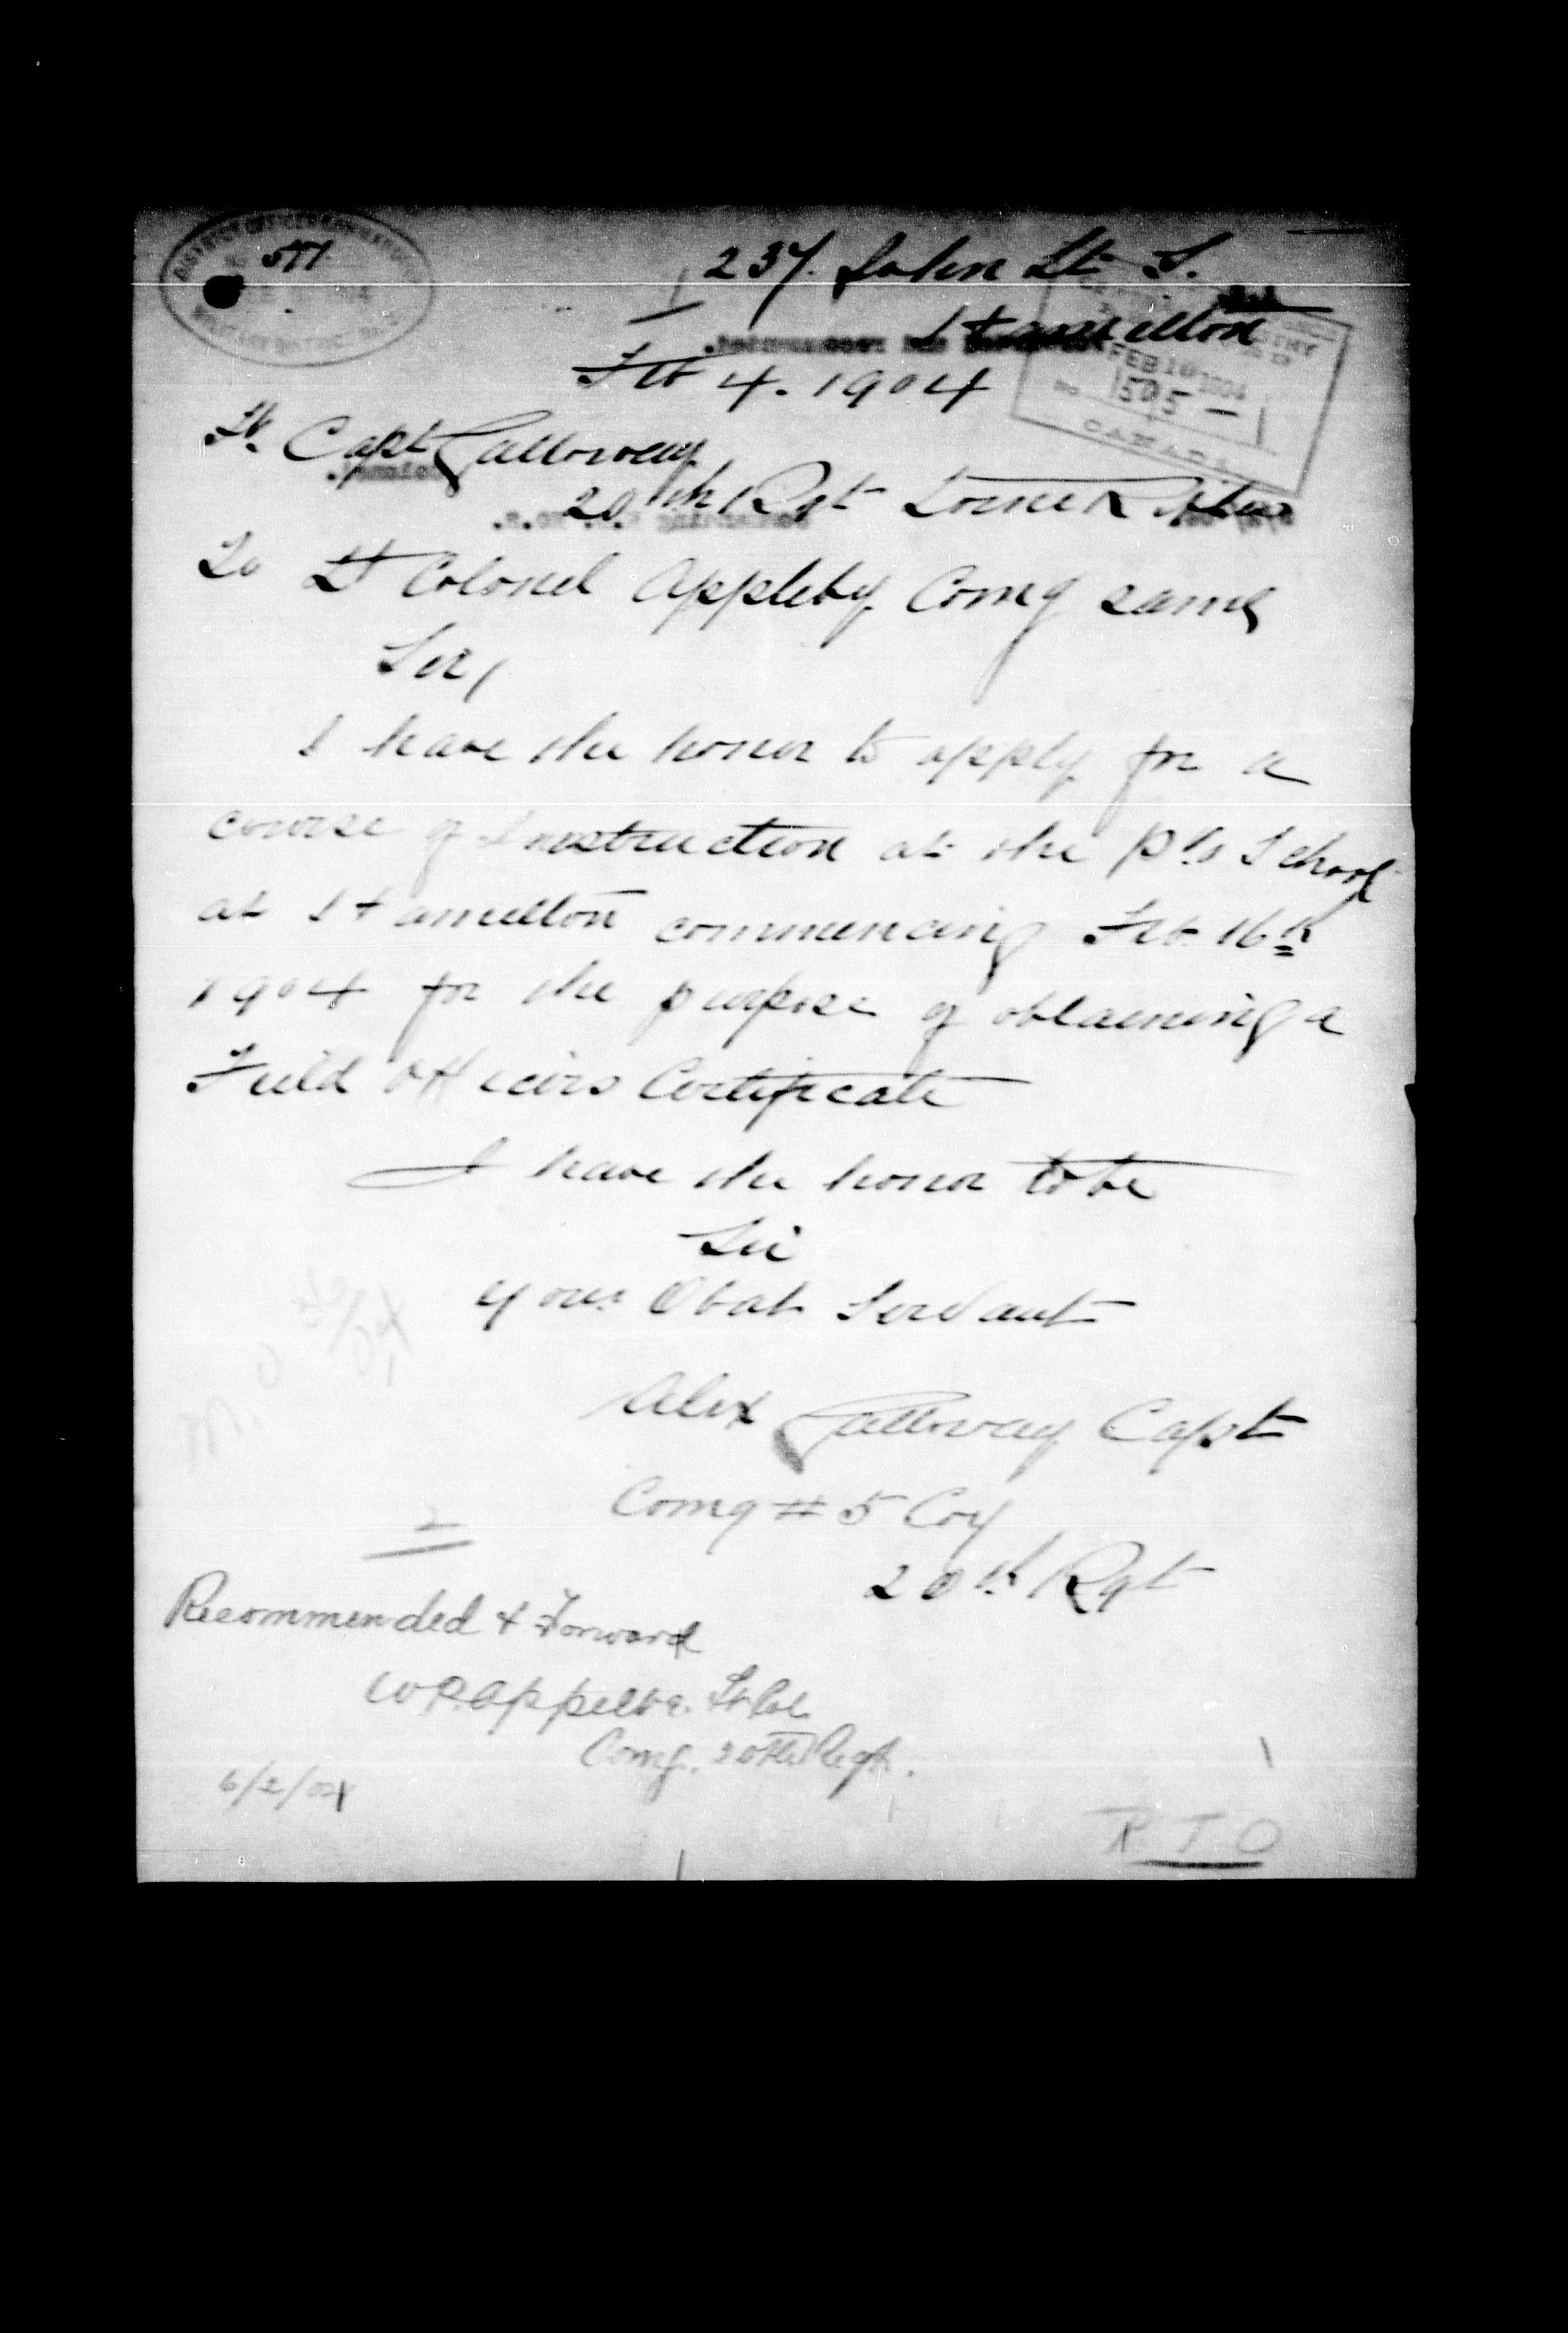 237 John St S.
Hamilton
Feb 4. 1904
Fr. Capt Galloway
20th Rgt Lorne Rifles
To Lt Colonel Appleby Comg same
Sir,
I have the honor to apply for a
course of Instruction at the School
at Hamilton commencing Feb. 16th
1904 for the purpose of obtaining a
Field Officers Certificate
I have the honor to be
Sir
Your Obdt Servant
Alex Galloway Capt
Comg # 5 Coy
20th Rgt
2
Recommended & Forward
Lt Col
Comg. 20th Regt.
6/2/04
R T O
DISTRICT OFFICER COMMANDING
1904
MILITARY DISTRICT No. 2
FEB 10 1904
505
CANADA